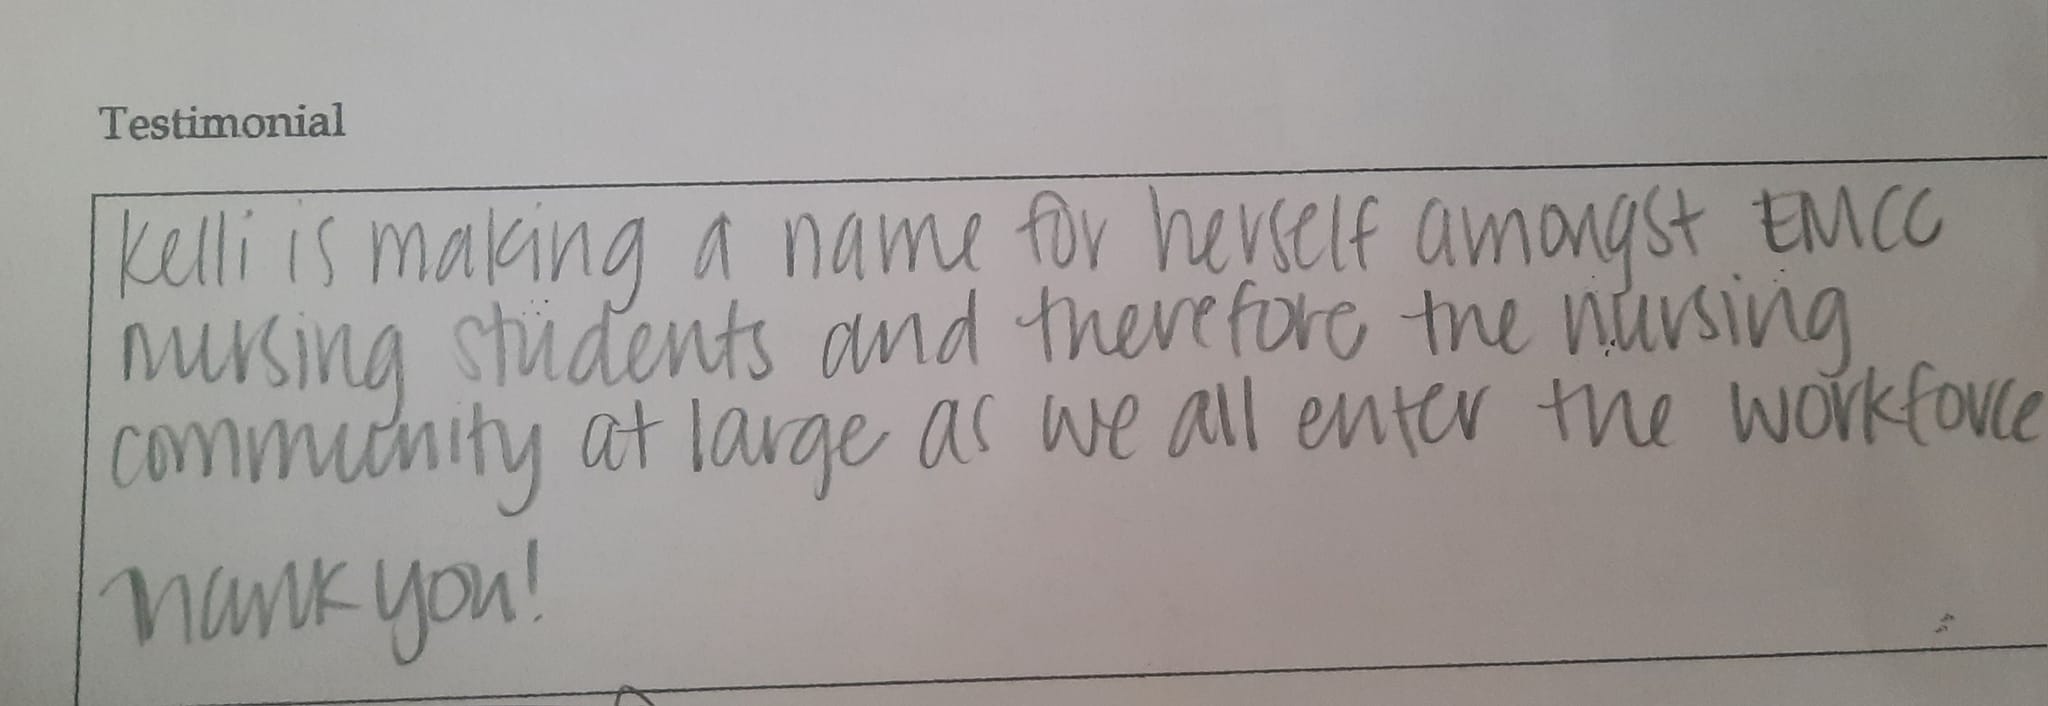 Testimonial
Kelli is making a name for herself amongst EMCC
nursing students and therefore the nursing
community at large as we all enter the workforce
Thank you!